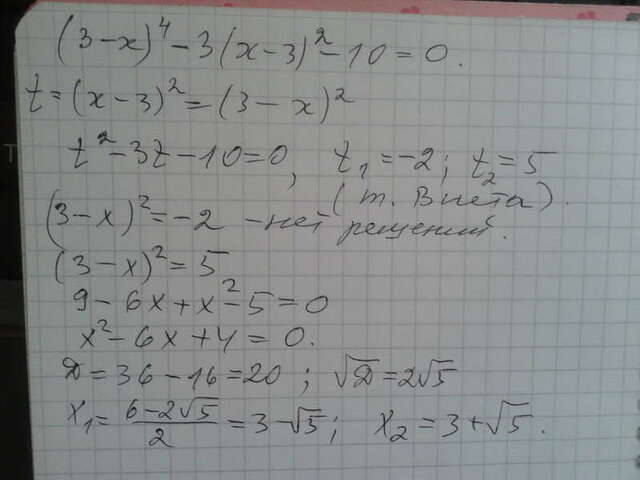 (3-x)⁴-3(x-3)²-10=0.
t=(x-3)²=(3-x)²
t²-3t-10=0, t₁=-2; t₂=5
(т. Виета).
(3-x)²=-2 -нет решений.
(3-x)²=5
9-6x+x²-5=0
x²-6x+4=0.
D=36-16=20; √D=2√5
x₁=(6-2√5)/2=3-√5; x₂=3+√5.